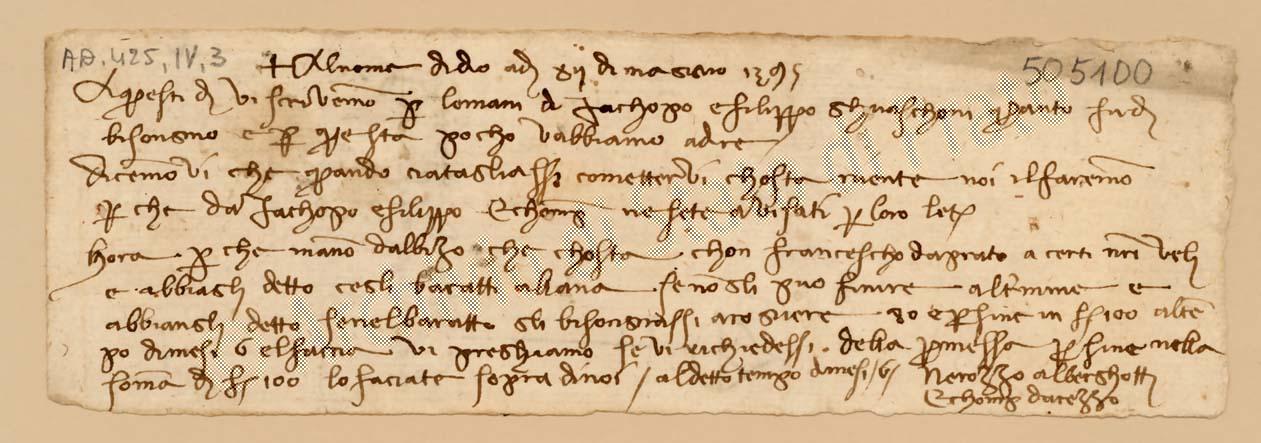 AD. 425, IV, 3
505100
+ Al nome di dio adj xij di magio 1395
A questi dj vi scrivemo p lomani di Jachopo e filippo ghuaschoni quanto fu dj
bisongno e p questa pocho vabbiamo a dire
dicemovi che quando catagliassi cometter vi chosta niente noi il faremo
p che da Jachopo e filippo e chonpa ne sete avisati p loro letr
hora p che nano dalbizo che chosta chon francescho da prato a certi nri veli
e abbiagli detto cegli baratti a lana se no gli puo finire a termine e
abbiangli detto se nel baratto gli bisongnassi acogliere so e p sine in ff 100 al te
po di mesi 6 el faccia vi preghiamo se vi richiedessi della promessa p sine nella
soma dj ff 100 lo faciate sopra di noi / al detto tempo di mesi / 6 /
Nerozzo alberghotti
e chonpa darezzo